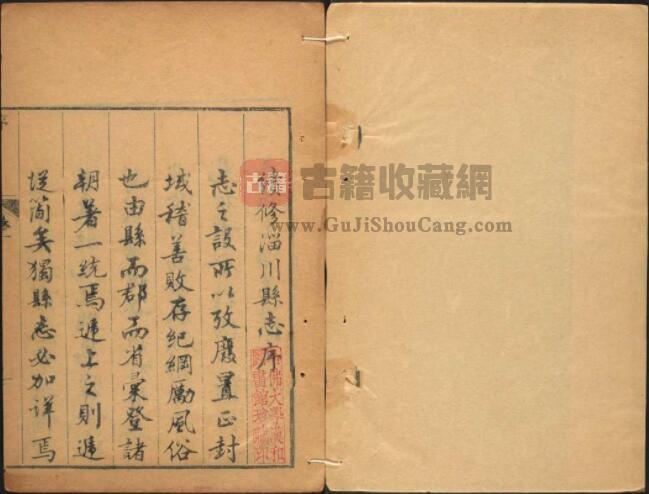 修淄川縣志序
志之設所以攷廢置正封
域稽善敗存紀綱勵風俗
也由縣而郡而省彙登諸
朝著一統焉遞上之則遞
從簡矣獨縣志必加詳焉
序
古籍
古籍收藏網
www.GuJiShouCang.com
佛大學漢和
圖書館珍藏印